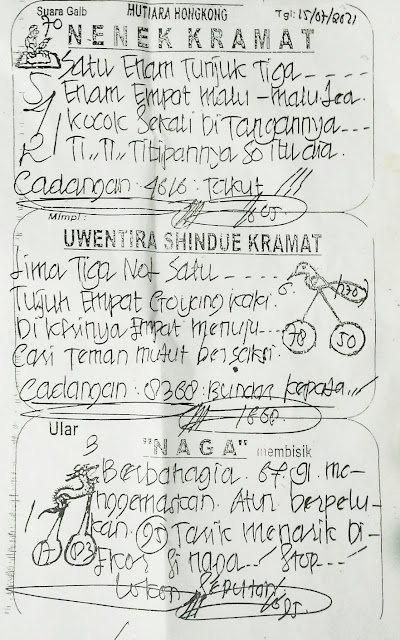 Suara Gaib MUTIARA HONGKONG Tgl: 15/07/2021
70
NENEK KRAMAT
Satu Enam Tunjuk Tiga
51 Enam Empat malu-malu
Kocok Sekali Di Tangannya
21 Ti,, Ti,, Titipannya 80 itu dia.
Cadangan: 4616: Takut
Mimpi:
UWENTIRA SHINDUE KRAMAT
Lima Tiga Not Satu
Tujuh Empat Goyang kaki. 6.
Empat menuju 78 50
Cari Teman mulut bersaksi.
Cadangan: 8368: Bundar kepala
Ular
3
"NAGA" membisik
Berbahagia. 67. 91. me-
nggemaskan. Atur berpelu-
1 kan. 95 Tarik menarik Di-
17 03 Ekor Si naga Stop
Seputar